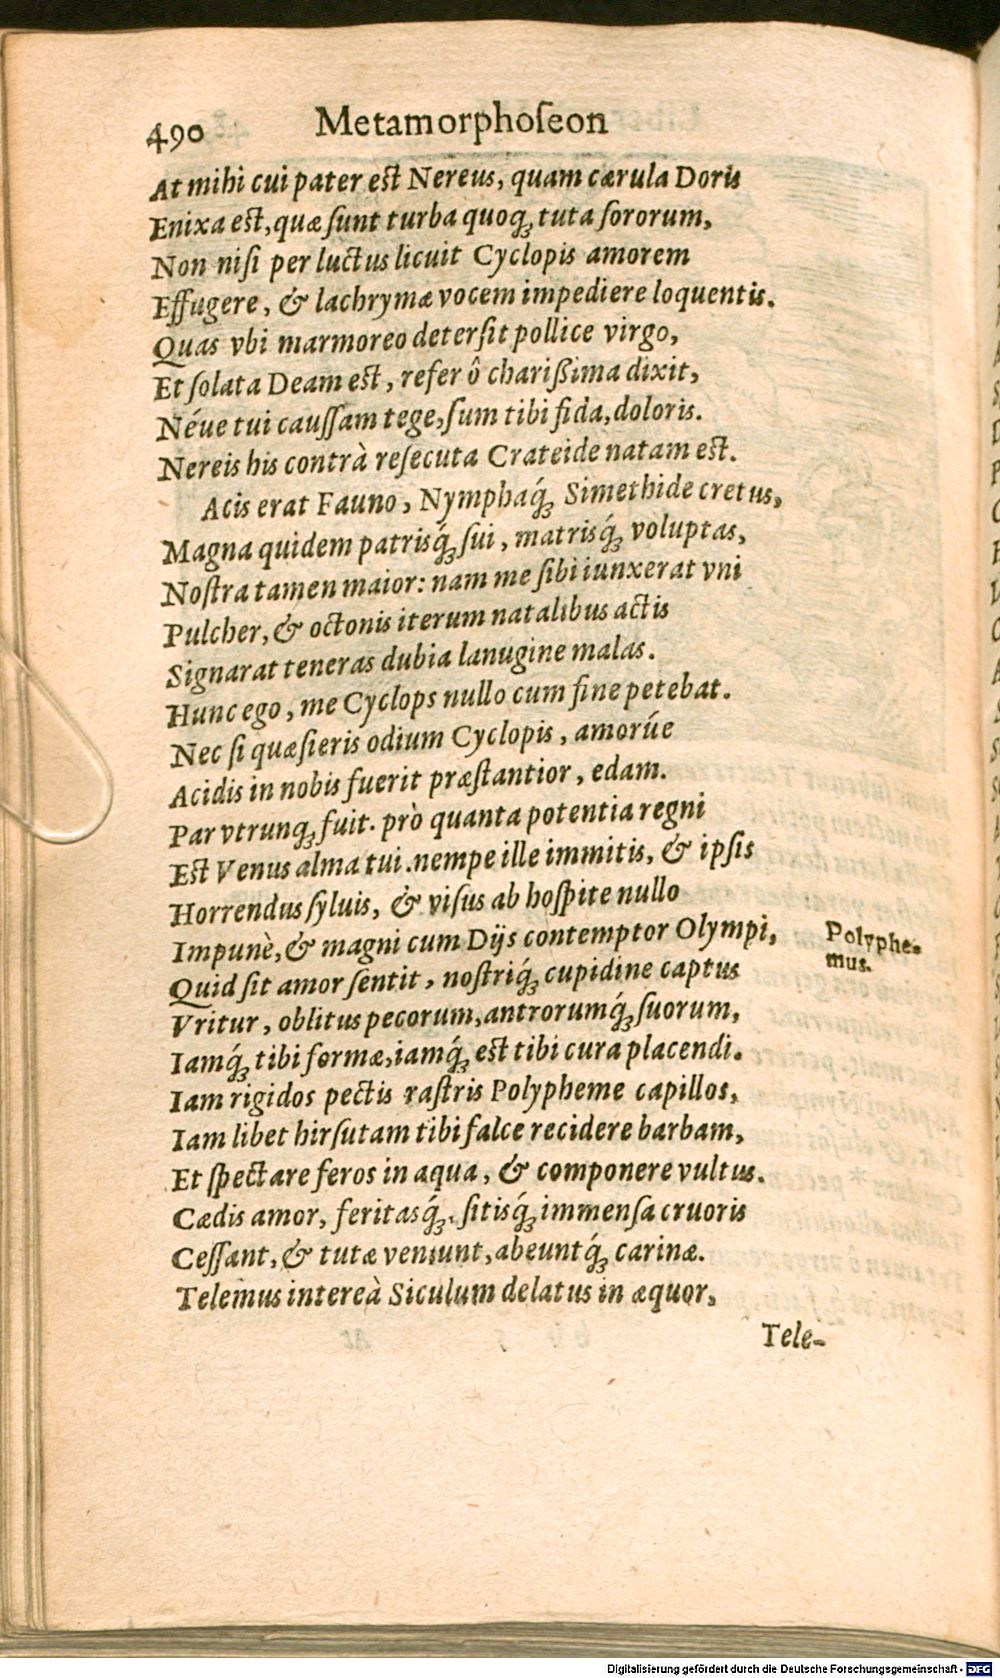 490 Metamorphoſeon
At mihi cui pater est Nereus, quam cærula Doris
Enixa est, quæ ſunt turba quoq; tuta ſororum,
Non niſi per luctus licuit Cyclopis amorem
Effugere, & lachrymæ vocem impediere loquentis.
Quas vbi marmoreo deterſit pollice virgo,
Et ſolata Deam est, refer ô charißima dixit,
Néue tui cauſſam tege, ſum tibi fida, doloris.
Nereis his contrà reſecuta Crateide natam est.
Acis erat Fauno, Nymphaq́; Simethide cretus,
Magna quidem patrisq́; ſui, matrisq́; voluptas,
Noſtra tamen maior: nam me ſibi iunxerat vni
Pulcher, & octonis iterum natalibus actis
Signarat teneras dubia lanugine malas.
Hunc ego, me Cyclops nullo cum fine petebat.
Nec ſi quæſieris odium Cyclopis, amorúe
Acidis in nobis fuerit præſtantior, edam.
Par vtrunq; fuit. prò quanta potentia regni
Est Venus alma tui. nempe ille immitis, & ipſis
Horrendus ſyluis, & viſus ab hoſpite nullo
Impunè, & magni cum Dijs contemptor Olympi,
Polyphe-
mus.
Quid ſit amor ſentit, noſtriq́; cupidine captus
Vritur, oblitus pecorum, antrorumq́; ſuorum,
Iamq́; tibi formæ, iamq́; est tibi cura placendi.
Iam rigidos pectis raſtris Polypheme capillos,
Iam libet hirſutam tibi falce recidere barbam,
Et ſpectare feros in aqua, & componere vultus.
Cædis amor, feritasq́;, ſitisq́; immenſa cruoris
Ceſſant, & tutæ veniunt, abeuntq́; carinæ.
Telemus intereà Siculum delatus in æquor,
Tele-
Digitalisierung gefördert durch die Deutsche Forschungsgemeinschaft - DFG